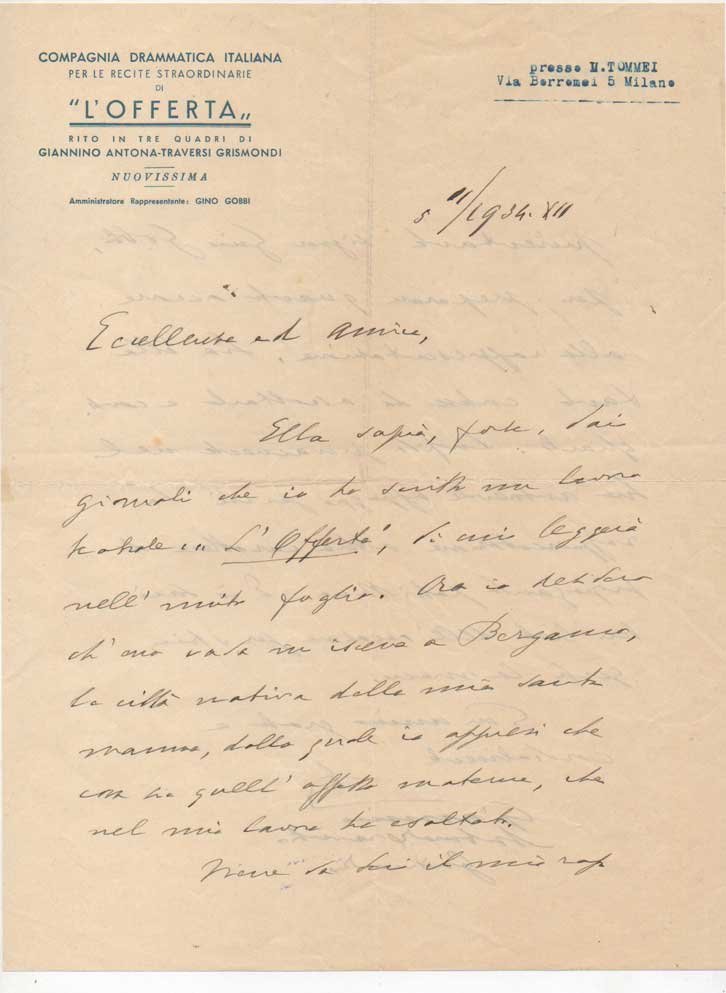 COMPAGNIA DRAMMATICA ITALIANA
PER LE RECITE STRAORDINARIE
DI
"L'OFFERTA„
RITO IN TRE QUADRI DI
GIANNINO ANTONA-TRAVERSI GRISMONDI
NUOVISSIMA
Amministratore Rappresentante: GINO GOBBI
presso M.TOMMEI
Via Borromei 5 Milano
5 11/1934. XII
Eccellenza ed amico,
Ella saprà, forse, dai
giornali che io ho scritto un lavoro
teatrale: „L'Offerta", di cui leggerà
nell' unito foglio. Ora io desidero
ch' esso vada in iscena a Bergamo,
la città nativa della mia santa
mamma, dalla quale io appresi che
cosa sia quell' affetto materno, che
nel mio lavoro ho esaltato.
Viene da Lei il mio rap